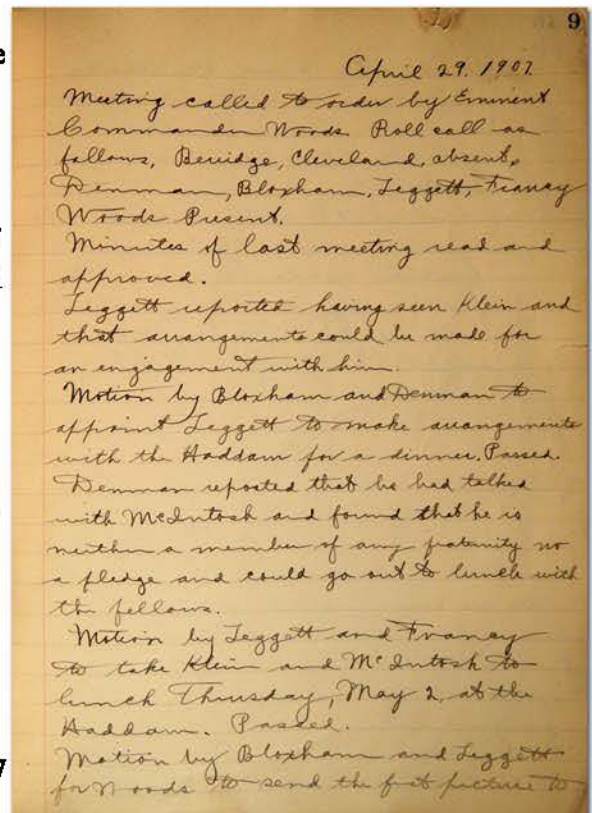 9
April 29, 1907.
Meeting called to order by Eminent
Commander Woods. Roll call as
follows, Berridge, Cleveland, absent,
Denman, Bloxham, Leggett, Francy
Woods Present.
Minutes of last meeting read and
approved.
Leggett reported having seen Klein and
that arrangements could be made for
an engagement with him.
Motion by Bloxham and Denman to
appoint Leggett to make arrangements
with the Haddam for a dinner. Passed.
Denman reported that he had talked
with McIntosh and found that he is
neither a member of any fraternity no
a pledge and could go out to lunch with
the fellows.
Motion by Leggett and Francy
to take Klein and McIntosh to
lunch Thursday, May 2, at the
Haddam. Passed.
Motion by Bloxham and Leggett
for Woods to send the frat picture to